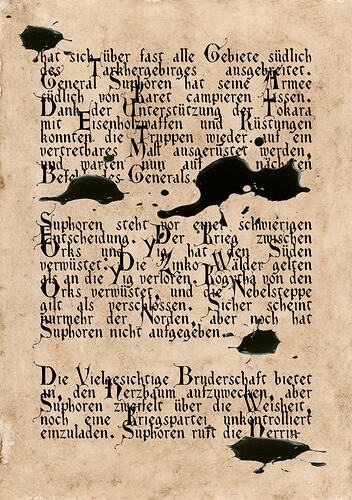 hat sich über fast alle Gebiete südlich
des Tarkhergebirges ausgebreitet.
General Suphoren hat seine Armee
südlich von Karet campieren lassen.
Dank der Unterstützung der Tokara
mit Eisenholzwaffen und Rüstungen
konnten die Truppen wieder auf ein
vertretbares Maß ausgerüstet werden,
und warten nun auf nächsten
Befehl des Generals.
Suphoren steht vor einer schwierigen
Entscheidung. Der Krieg zwischen
Orks und Yig hat den Süden
verwüstet. Die Zinko Wälder gelten
als an die Yig verloren, von den
Orks verwüstet, und die Nebelsteppe
gilt als verschlossen. Sicher scheint
nurmehr der Norden, aber noch hat
Suphoren nicht aufgegeben.
Die Vielgesichtige Bruderschaft bietet
an, den Herzbaum aufzuwecken, aber
Suphoren zweifelt über die Weisheit,
noch eine Kriegspartei unkontrolliert
einzuladen. Suphoren ruft die Herrin